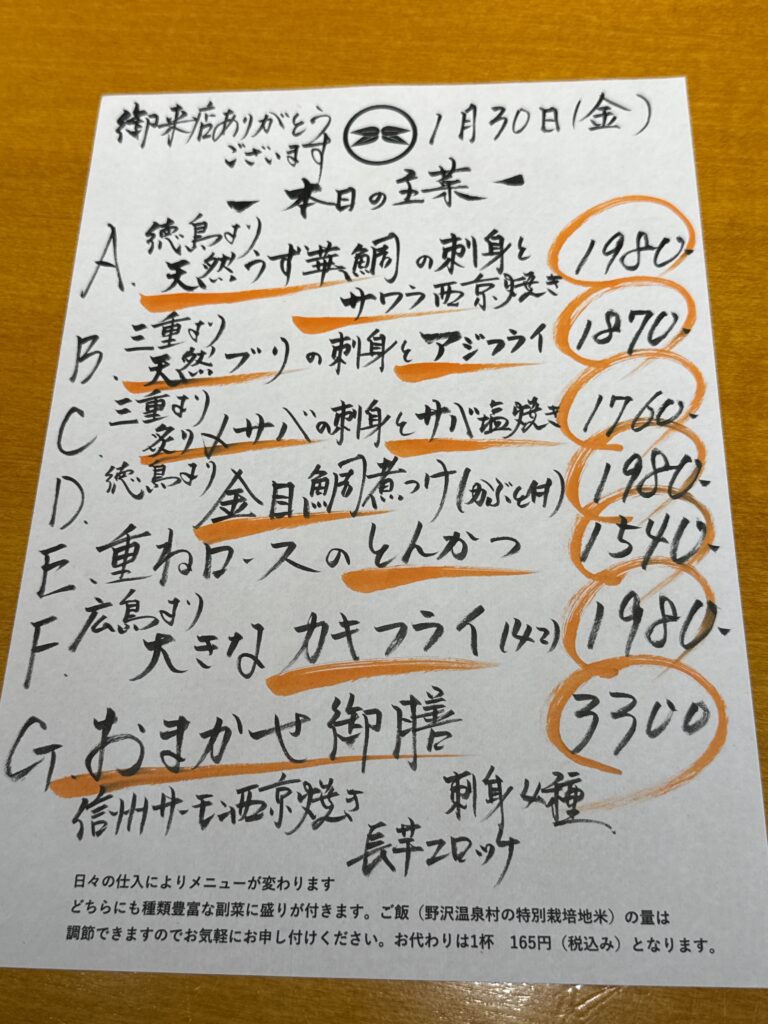 御来店ありがとう
ございます
1月30日(金)
本日の主菜
A. 徳島より
天然うず華鯛の刺身と
サワラ西京焼き 1980-
B. 三重より
天然ブリの刺身とアジフライ 1870-
C. 三重より
炙り〆サバの刺身とサバ塩焼き 1760-
D. 徳島より
金目鯛煮つけ(かぶと付) 1980-
E. 重ねロースのとんかつ 1540-
F. 広島より
大きなカキフライ(4コ) 1980-
G. おまかせ御膳 3300
信州サーモン西京焼き 刺身4種
長芋コロッケ
日々の仕入によりメニューが変わります
どちらにも種類豊富な副菜に盛りが付きます。ご飯(野沢温泉村の特別栽培地米)の量は
調節できますのでお気軽にお申し付けください。お代わりは1杯 165円(税込み)となります。